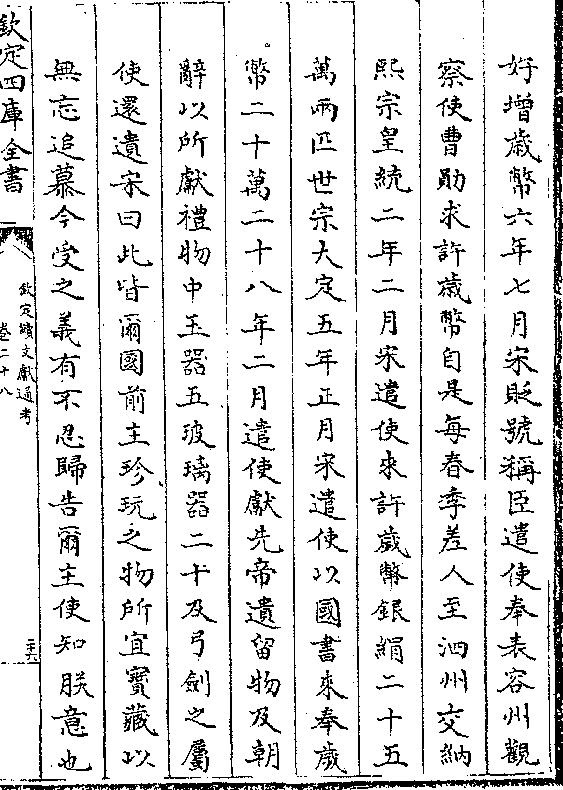 好增歲幣六年七月宋貶號稱臣遣使奉表容州觀
察使曹勛求許歲幣自是每春季差人至泗州交納
熙宗皇統二年二月宋遣使來許歲幣銀絹二十五
萬兩匹世宗大定五年正月宋遣使以國書來奉歲
幣二十萬二十八年二月遣使獻先帝遺留物及朝
辭以所獻禮物中玉器五玻璃器二十及弓劍之屬
使還遺宋曰此皆爾國前主珍玩之物所宜寶藏以
無忘追慕今受之義有不忍歸告爾主使知朕意也
欽定四庫全書
欽定續文獻通考
卷二十八